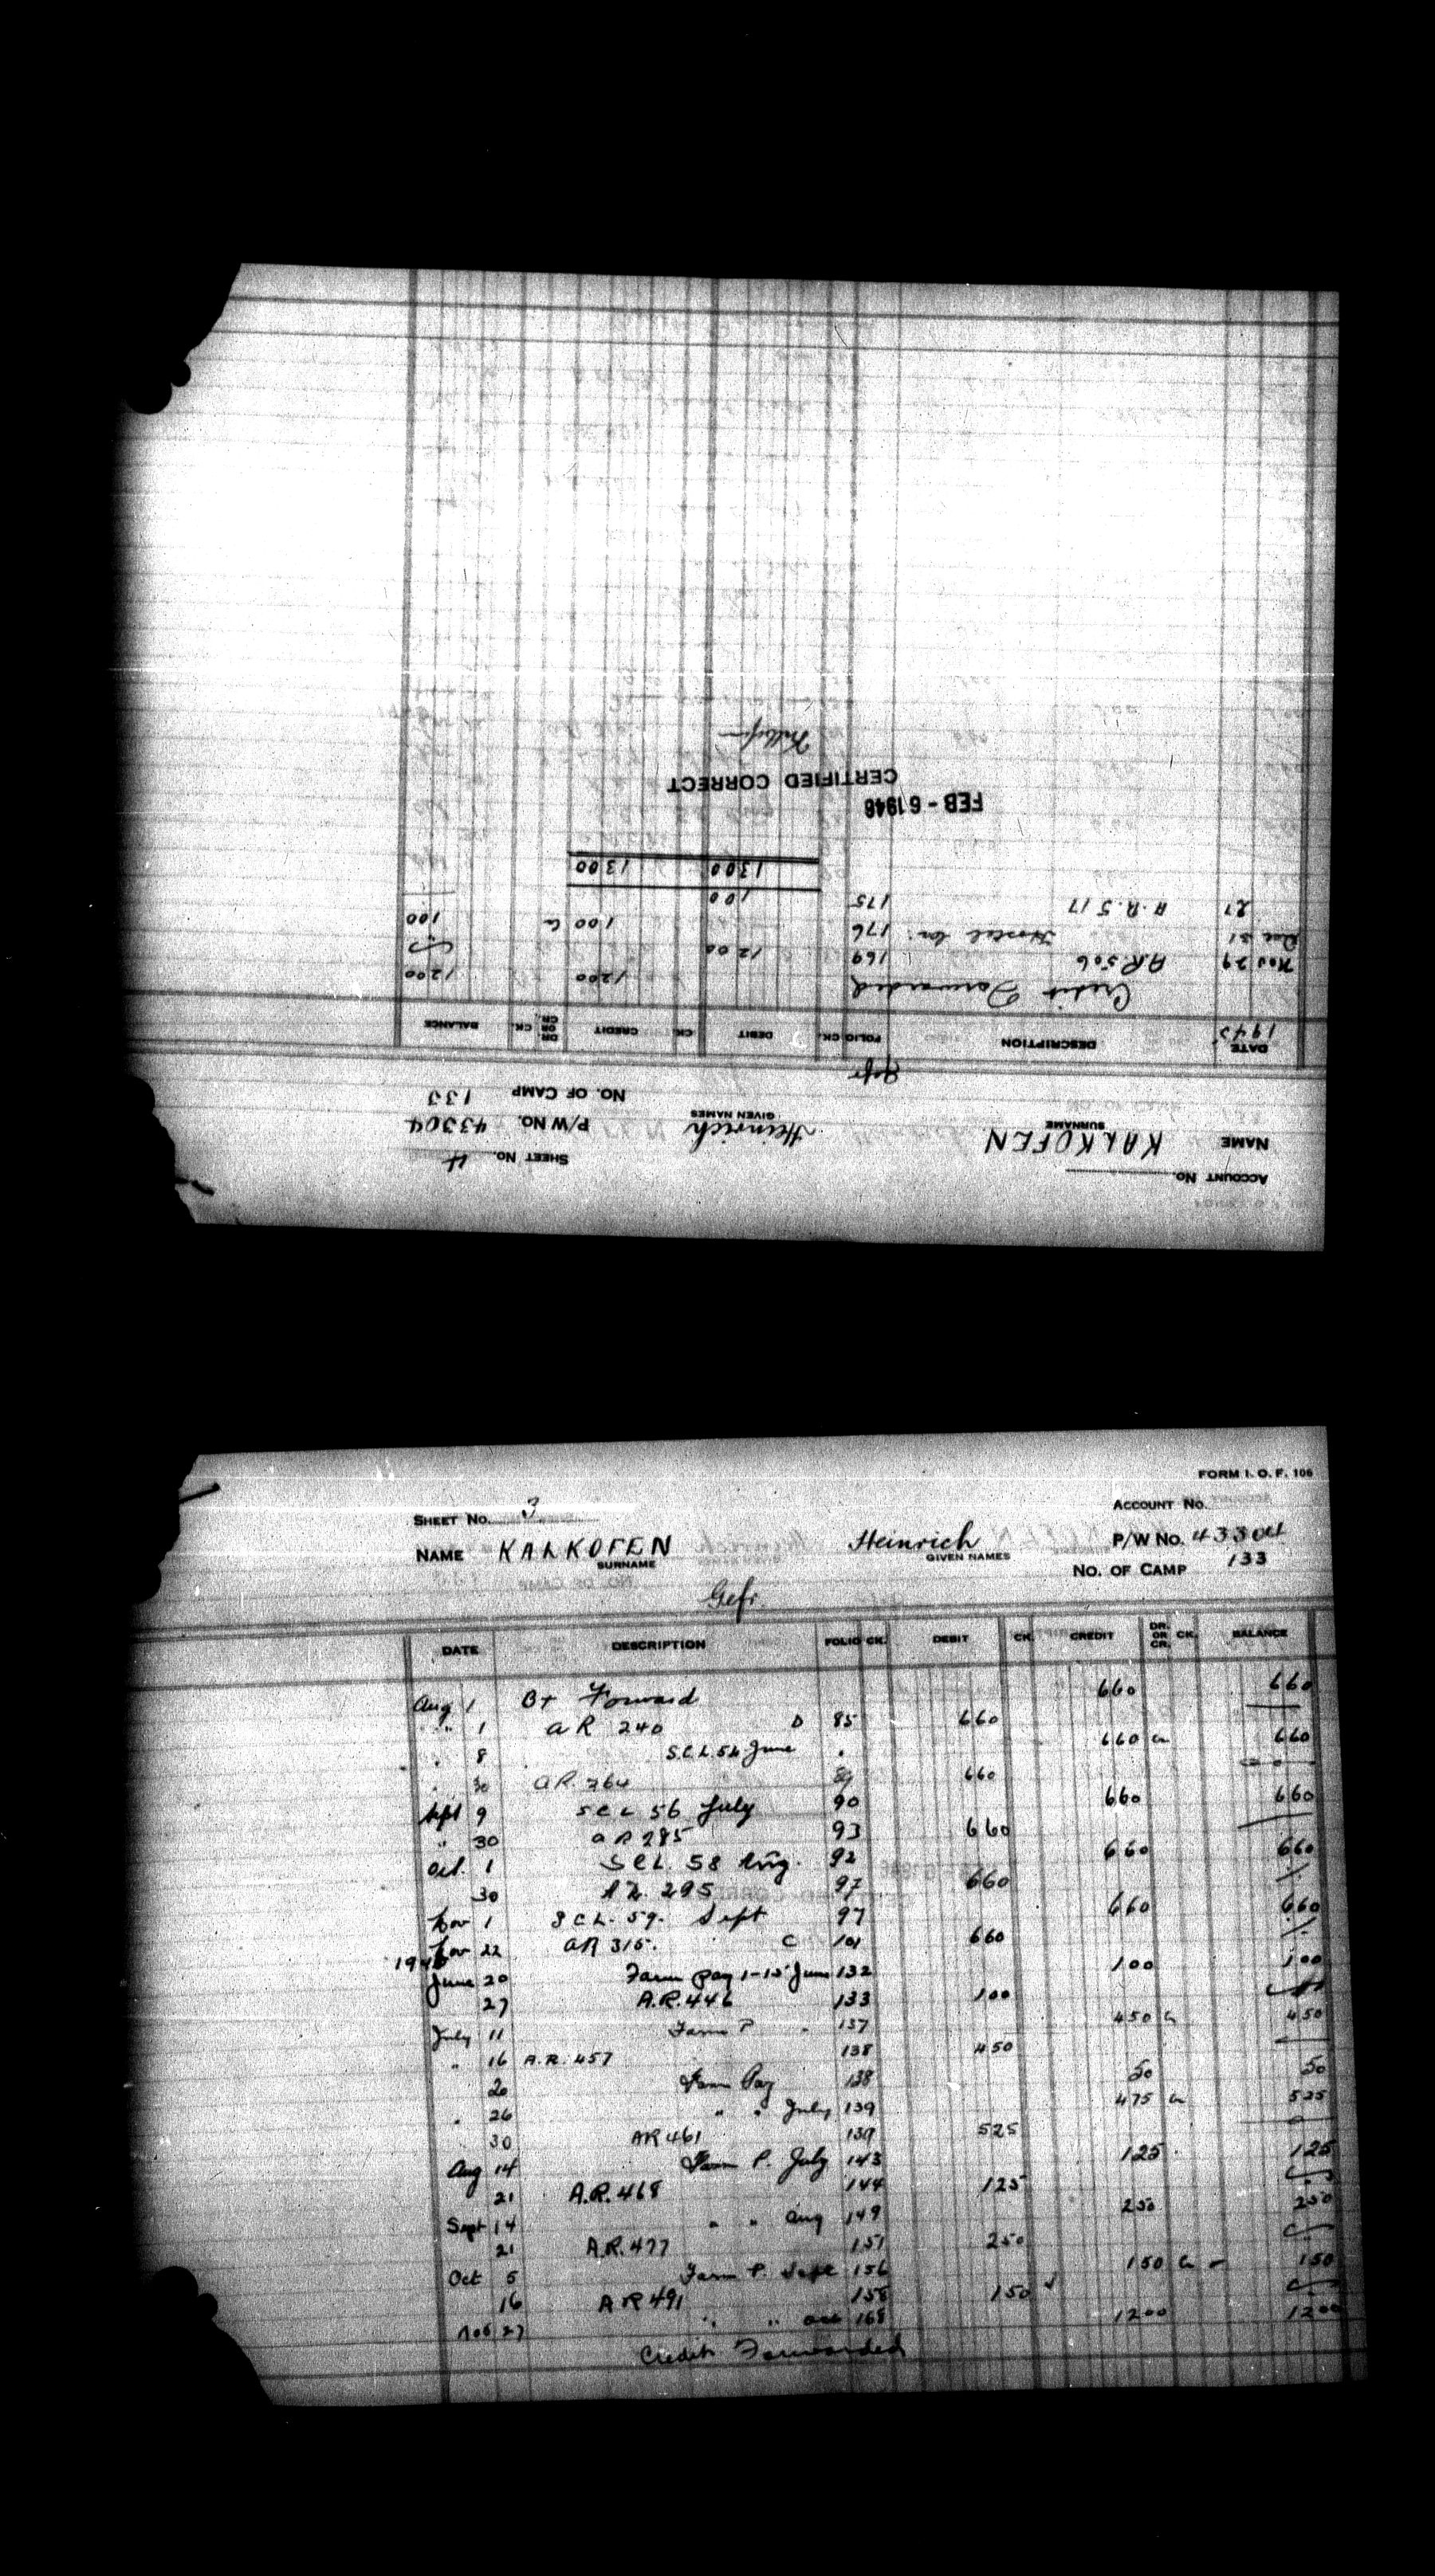 ACCOUNT No. SHEET No. 4
NAME KALKOFEN Heinrich P/W No. 43304
SURNAME GIVEN NAMES
NO. OF CAMP 133
Gefr
DATE DESCRIPTION FOLIO CK. DEBIT CK. CREDIT DR. OR CR. CK. BALANCE
1945
Credit Forwarded 1200 1200
Nov 29 A.R 506 169 1200
Dec 31 176 100 Cr 100
21 A.R. 517 175 100
1300 1300
FEB - 6 1946
CERTIFIED CORRECT
FORM I. O. F. 106
SHEET No. 3 ACCOUNT No.
NAME KALKOFEN Heinrich P/W No. 43304
SURNAME GIVEN NAMES
NO. OF CAMP 133
Gefr.
DATE DESCRIPTION FOLIO CK. DEBIT CK. CREDIT DR. OR CR. CK. BALANCE
Aug 1 Bt Forward 660 660
" 1 a R 240 D 85 660
" 8 S.C.L. 54 June " 660 Cr 660
" 30 a R. 264 89 660 0
Sept 9 S C L 56 July 90 660 660
" 30 a R 285 93 660
Oct. 1 S C L. 58 Aug. 92 660 660
30 A R. 295 97 660
Nov 1 S C L. 59. Sept 97 660 660
Nov 22 a R 315. C 101 660
1945
June 20 Farm pay 1-15 June 132 100 100
27 A.R. 446 133 100
July 11 Farm P 137 450 Cr 450
" 16 A.R. 457 138 450
20 Farm Pay 138 50 50
" 26 " " July 139 475 Cr 525
30 AR 461 139 525 0
Aug 14 Farm P. July 143 125 125
21 A.R. 468 144 125
Sept 14 " " Aug 149 250 250
21 A.R. 477 151 250
Oct 5 Farm P. Sept 156 150 Cr 150
16 A R 491 158 150 ✓
Nov 27 " " Oct 168 1200 1200
Credit Forwarded